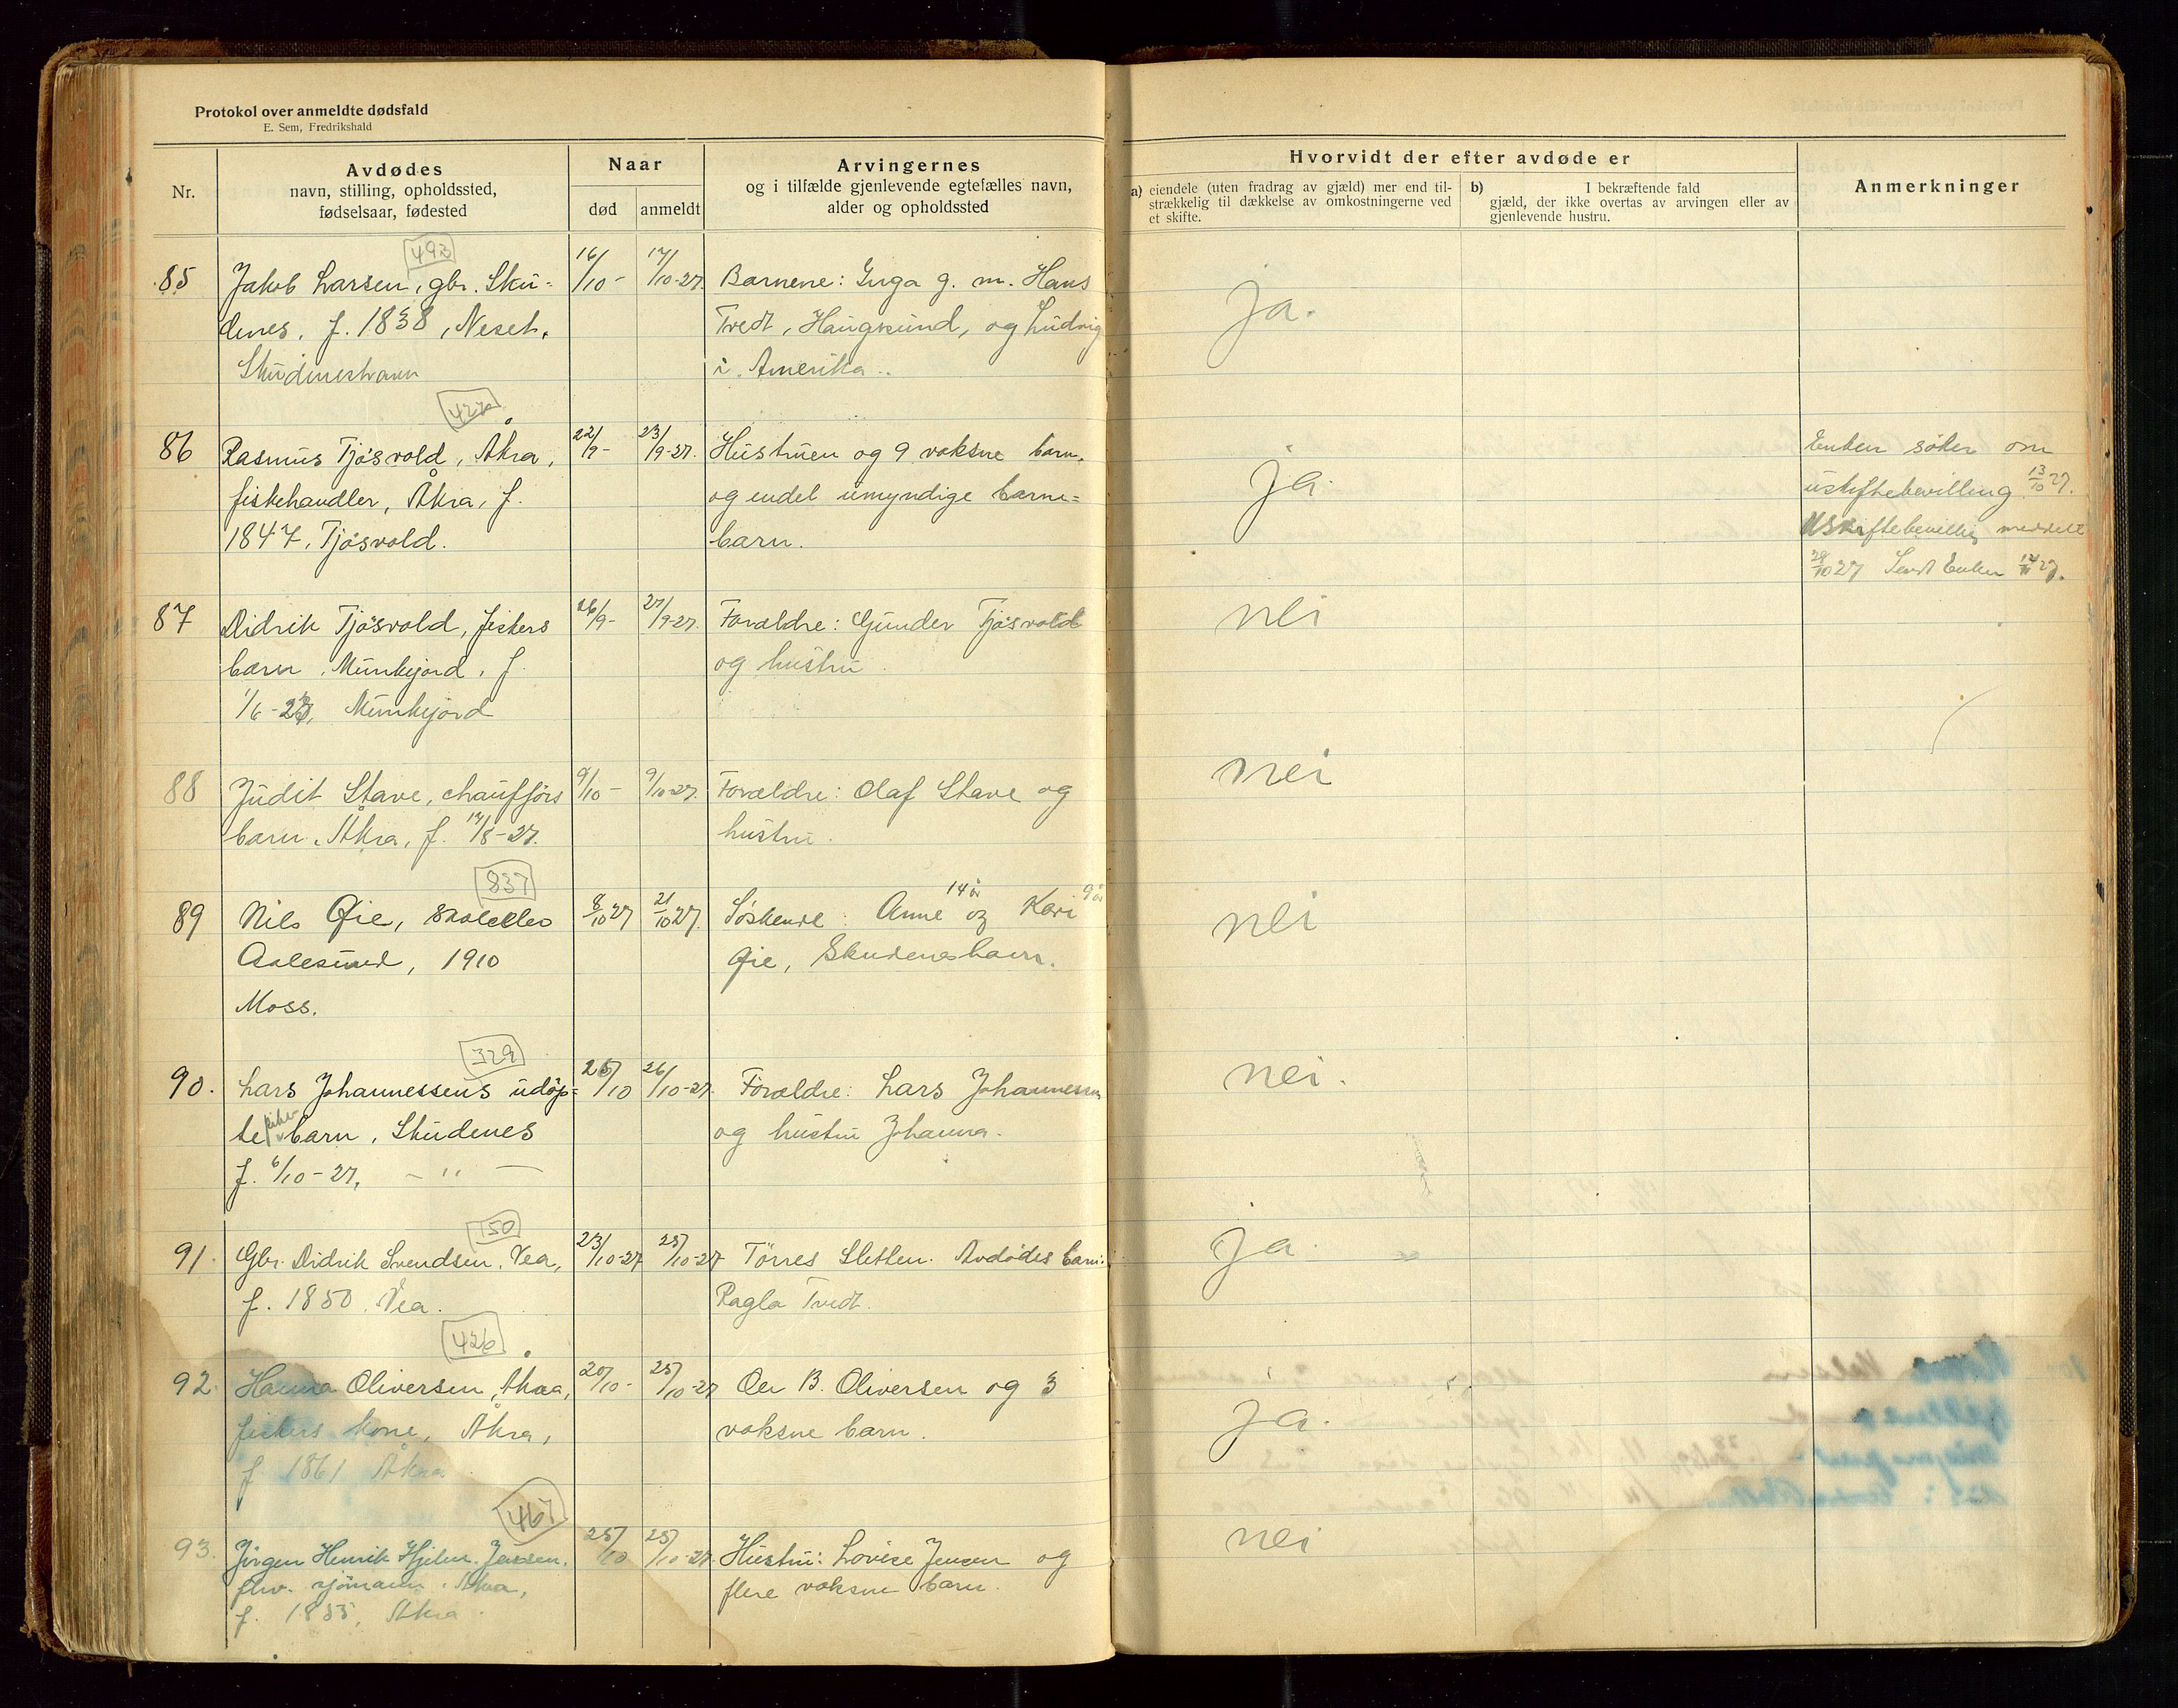 Protokol over anmeldte dødsfald
E. Sem, Fredrikshald
Nr.
Avdødes
navn, stilling, opholdssted,
fødselsaar, fødested
Naar
død
anmeldt
Arvingernes
og i tilfælde gjenlevende egtefælles navn,
alder og opholdssted
Hvorvidt der efter avdøde er
a) eiendele (uten fradrag av gjæld) mer end til-
strækkelig til dækkelse av omkostningerne ved
et skifte.
b) I bekræftende fald
gjæld, der ikke overtas av arvingen eller av
gjenlevende hustru.
Anmerkninger
493
85 Jakob Larsen, gbr. Sku- 16/10- 17/10-27. Barnene: Inga g. m. Hans ja.
denes, f. 1838, Neset, Tvedt, Haugesund, og Ludvig
Skudeneshavn i Amerika..
427
86 Rasmus Tjøsvold, Åkra, 22/9- 23/9-27. Hustruen og 9 voksne barn, ja. Enken søker om
fiskehandler, Åkra, f. og endel umyndige barne= uskiftebevilling 13/10 27.
1847, Tjøsvold. barn. Uskiftebevillig meddelt
28/10 27 Sendt Enken
87 Didrik Tjøsvold, fiskers 26/9- 27/9-27. Forældre: Gunder Tjøsvold nei
barn, Munkejord, f. og hustru.
1/6-27, Munkejord
88 Judit Stave, chauffførs 9/10- 9/10-27. Forældre: Olaf Stave og nei
barn, Åkra, f. 17/8-27. hustru.
837
89 Nils Øie, skoleelev 8/10 27 21/10 27. Søskende: Anne 14 år og Kari 9 år nei
Aalesund, 1910 Øie, Skudeneshavn.
Moss.
329
90. Lars Johannessens udøp= 25/10 26/10-27. Forældre: Lars Johannessen nei.
te pike barn, Skudenes og hustru Johanna.
f. 6/10-27, - " -
150
91. Gbr. Didrik Svendsen, Vea, 23/10-27 25/10-27 Tørres Sletten. Avdødes barn: ja.
f. 1850, Vea. Ragla Tvedt.
426
92. Hanna Oliversen, Åkra, 20/10- 25/10-27 Ole B. Oliversen og 3 ja.
fiskers kone, Åkra, voksne barn.
f 1861 Åkra
467
93. Jørgen Henrik Hjelm Jensen, 25/10 25/10-27. Hustru: Lovise Jensen og nei
fhv. sjømann, Åkra, flere voksne barn.
f. 1855, Åkra.